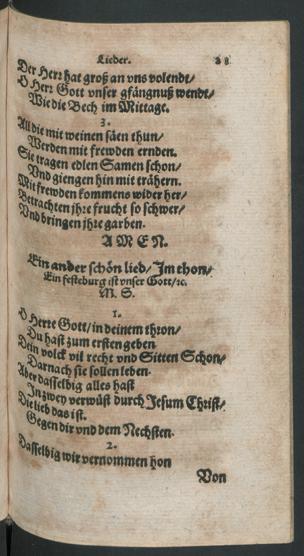 Lieder. 28
Der Herr hat groß an vns volendt/
O Herr Gott vnser gfängnuß wendt/
Wie die Bech im Mittage.
3.
All die mit weinen säen thun/
Werden mit frewden ernden.
Sie tragen edlen Samen schon/
Vnd giengen hin mit trähern.
Mit frewden kommens wider her/
Betrachten jhre frucht so schwer/
Vnd bringen jhre garben.
A M E N.
Ein ander schön lied/ Im thon/
Ein feste burg ist vnser Gott/ꝛc.
M. S.
1.
O Herre Gott/ in deinem thron/
Du hast zum ersten geben
Dein volck vil recht vnd Sitten Schon/
Darnach sie sollen leben.
Aber dasselbig alles hast
In zwey verwüst durch Jesum Christ/
Die lieb das ist.
Gegen dir vnd dem Nechsten.
2.
Dasselbig wir vernommen hon
Von